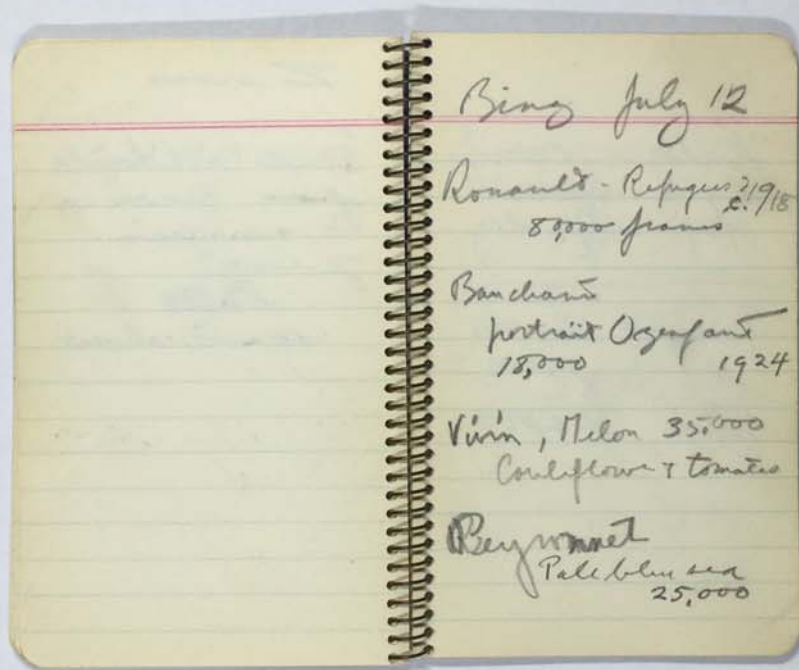 Bing July 12
Rouault - Refugees ?
c. 1918
80,000 francs
Bauchant
portrait Ozenfant
18,000 1924
Vivin, Melon 35,000
Cauliflower & tomatoes
Peyronnet
Pale blue sea
25,000